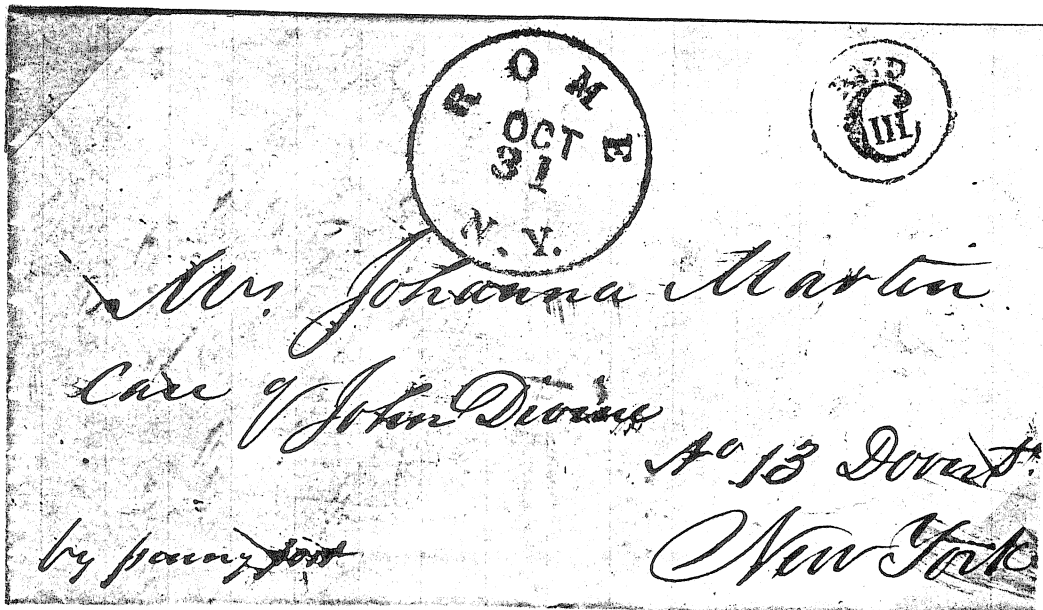 ROME
OCT
31
N.Y.
PAID
C III
Mrs. Johanna Martin
Care of John Devine
No 13 Dover St.
New York
by penny post